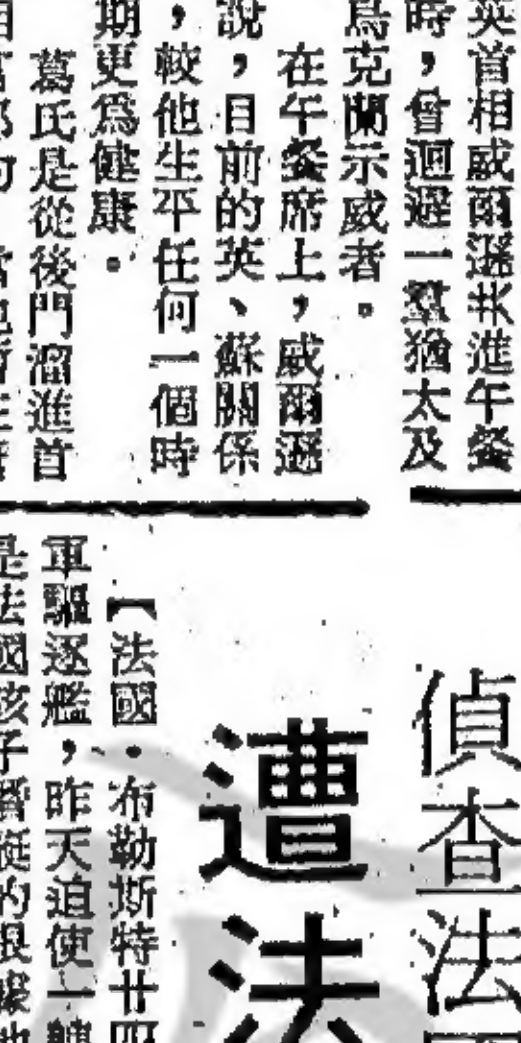 英首相威爾遜共進午餐
時，曾迴避一羣猶太及
烏克蘭示威者。
在午餐席上，威爾遜
說，目前的英、蘇關係
，較他生平任何一個時
期更爲健康。
葛氏是從後門溜進首
偵查法國
遭法
【法國·布勒斯特廿四
軍驅逐艦，昨天迫使一
是法國核子潛艇的根據地